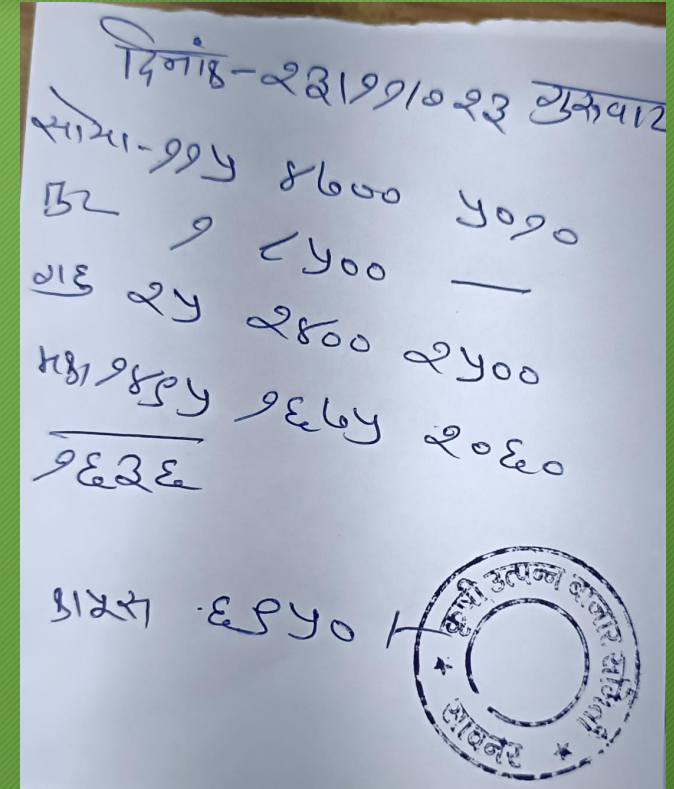 दिनांक - २३/११/०२३ गुरुवार
सोया - ११५ ४७०० ५०१०
१ ८५०० —
गहु २५ २४०० २५००
मका १४९५ १६७५ २०६०
१६३६
कापूस ६९५० /-
कृषी उत्पन्न बाजार समिती
सावनेर